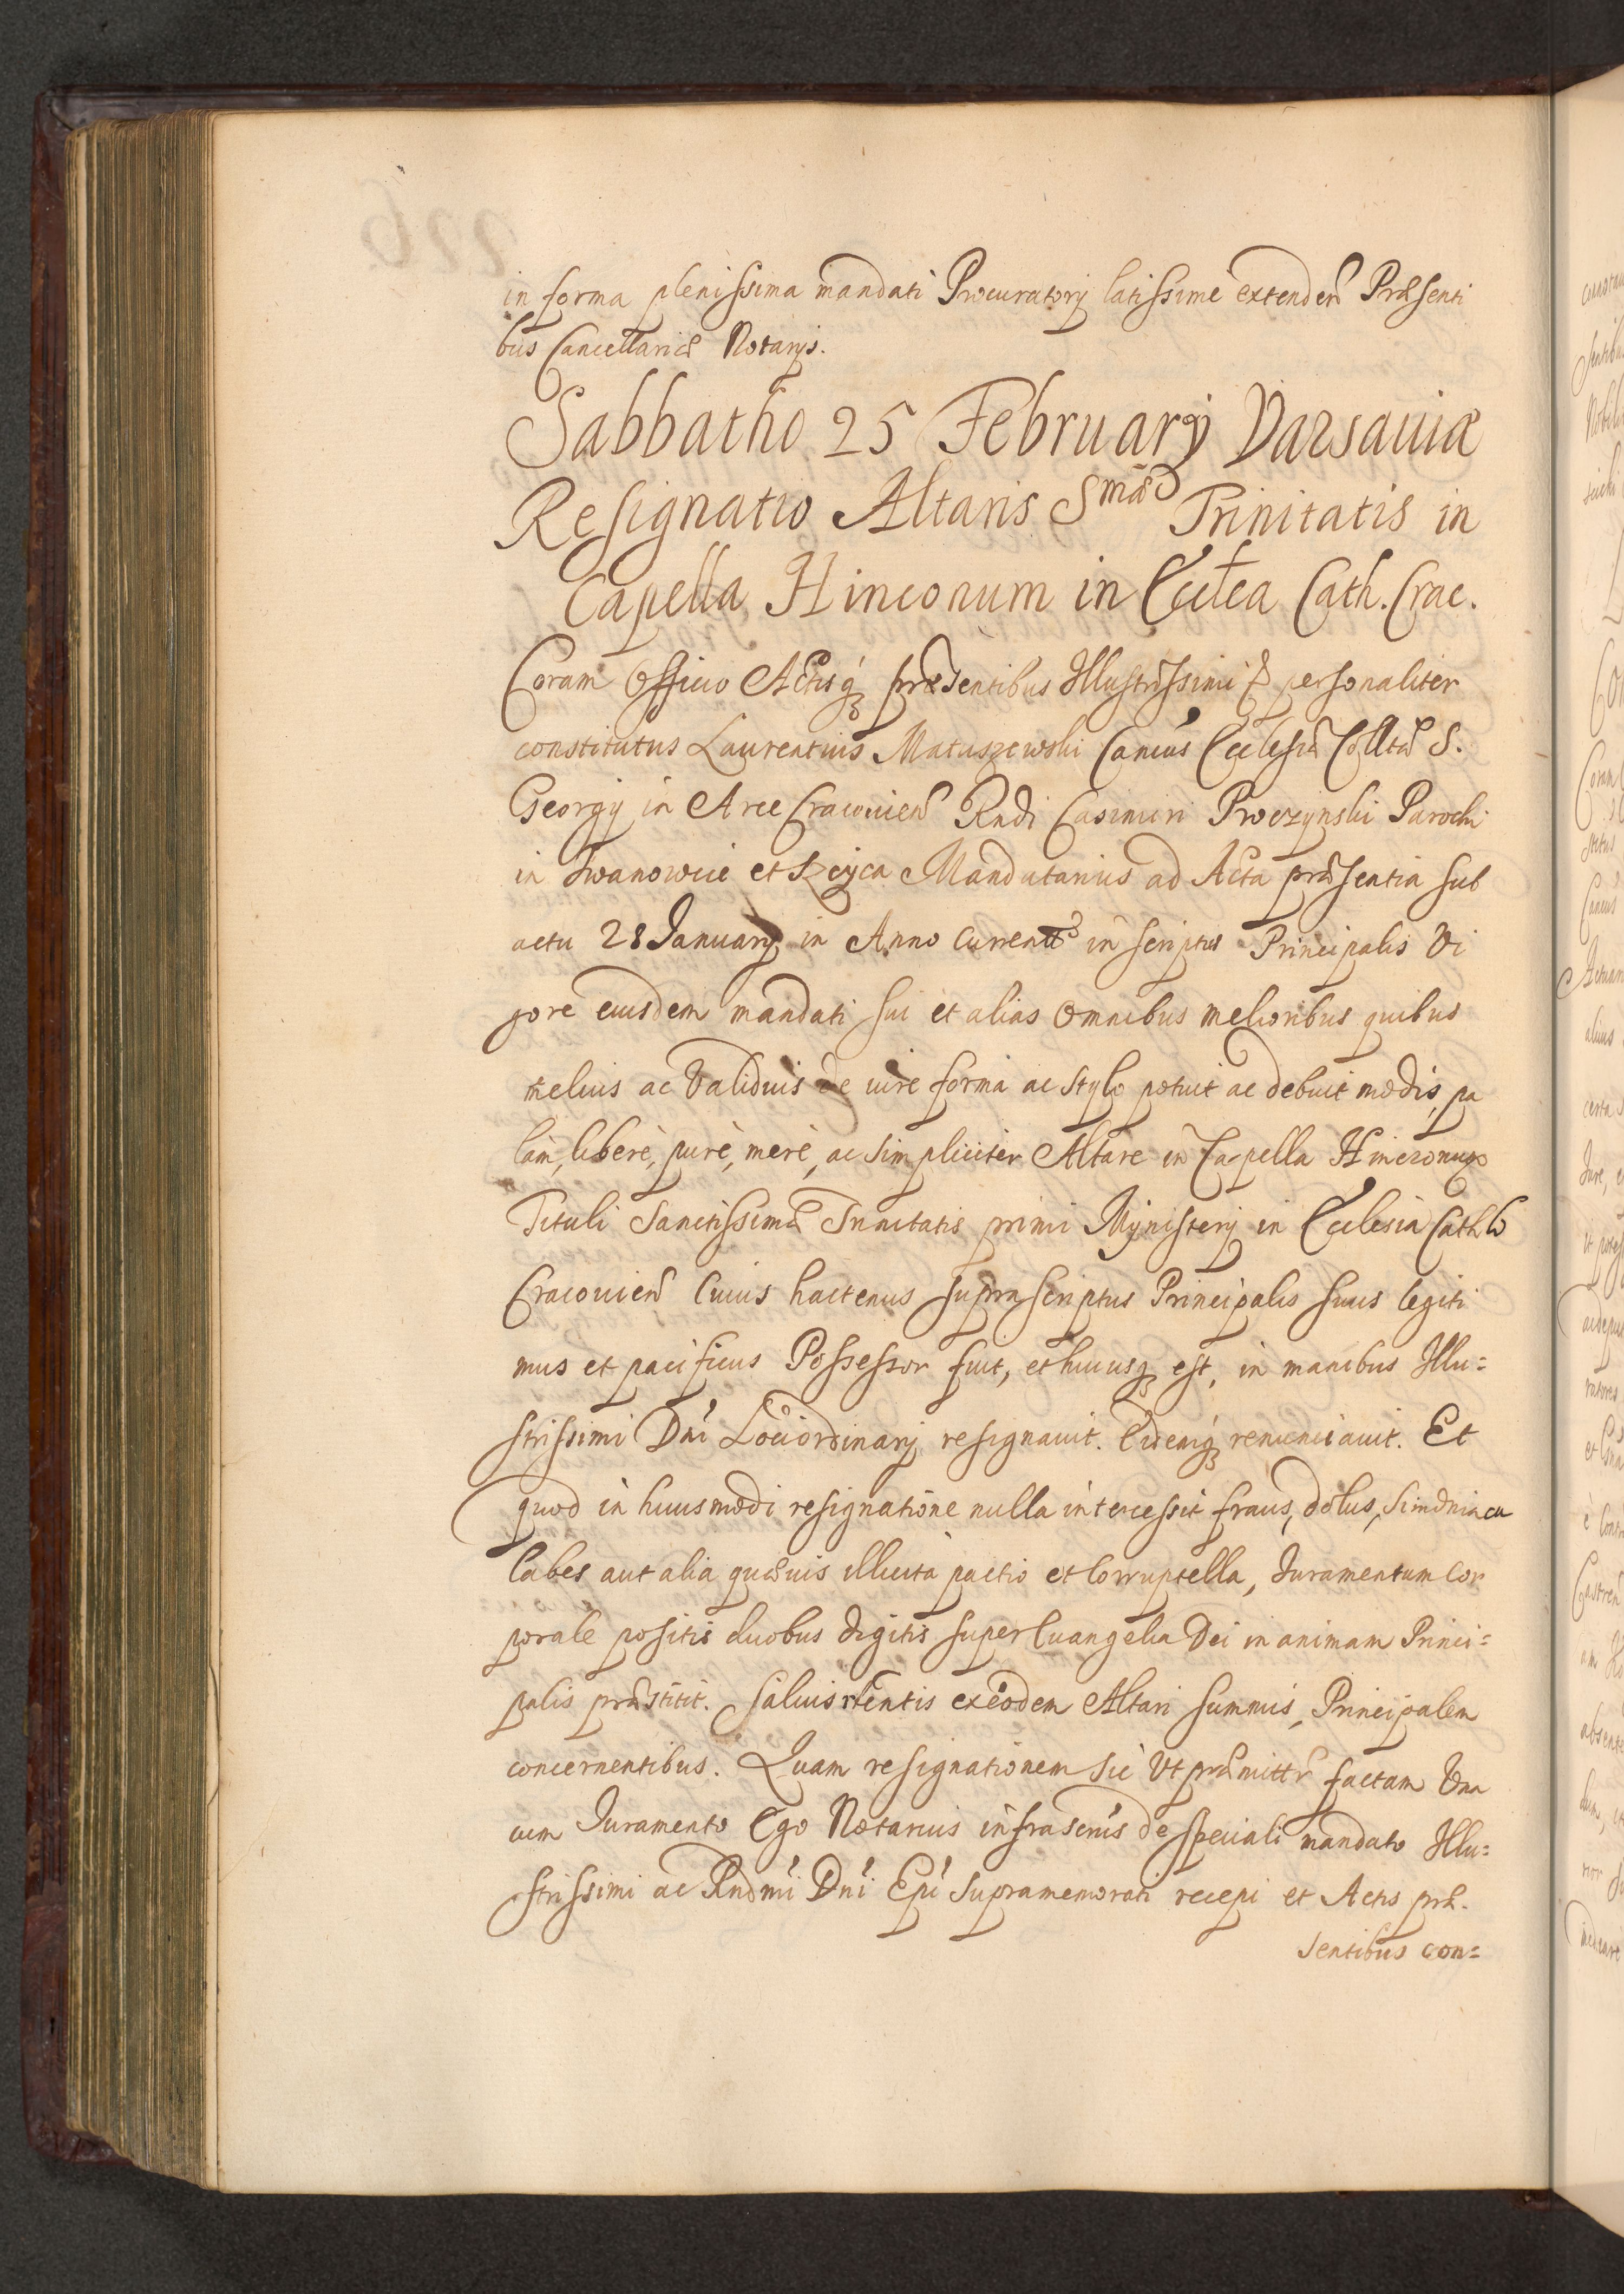 in forma plenissima mandati Procuratorij latissimè extenden Præsenti
bus Cancellariæ Notarijs.
Sabbatho 25 Februarij Varsauiæ
Resignatio Altaris Smæ Trinitatis in
Capella Hinconum in Eccła Cath. Crac.
Coram Officio Actisq præsentibus Illustrissimi &c personaliter
constitutus Laurentius Mataszewski Canĉus Ecclesiæ Colltæ S.
Georgij in Arce Cracouien Rndi Casimiri Proczynski Parochi
in Iwanowice et Szczyca Mandatarius ad Acta præsentia sub
actu 28 Januarij in Anno Currenti inscriptus Principalis Vi
gore eiusdem mandati sui et alias omnibus melioribus quibus
melius ac Validius de iure forma ac stylo potuit ac debuit modis, pa
làm, liberè, purè, merè, ac simpliciter Altare in Capella Hinczonum
Tituli Sanctissimæ Trinitatis primi Mynisterij in Ecclesia Cathli
Cracouien Cuius hactenus suprascriptus Principalis suus legiti
mus et pacificus Possessor fuit, et hucusq est, in manibus Illu=
strissimi Dni Lociordinarij resignauit. Eidemq renunciauit. Et
quod in huiusmodi resignatione nulla intercessit fraus, dolus, simoniaca
labes aut alia quæuis illicita pactio et Corruptella, Iuramentum Cor
porale positis duobus digitis super Euangelia Dei in animam Princi=
palis præstitit. Saluis rtentis ex eodem Altari summis, Principalem
concernentibus. Quam resignationem sic Vt præmittr factam Vna
cum Iuramento Ego Notarius infrascrius de speciali mandato Illu=
strissimi ac Rndmi Dni Epi supramemorati recepi et Actis præ-
sentibus con=